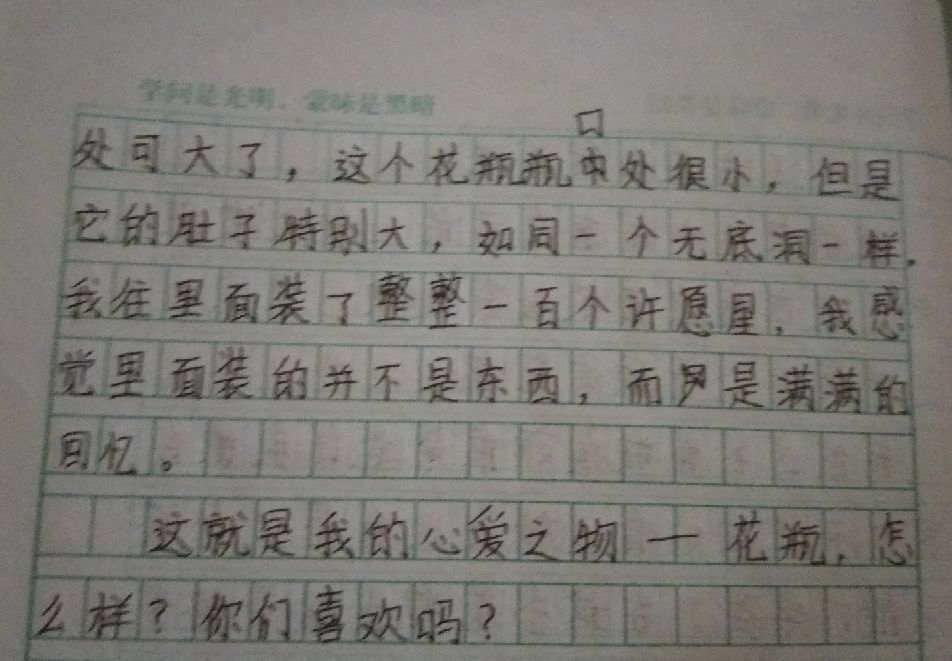 学问是光明，蒙昧是黑暗
口
处可大了，这个花瓶瓶中处很小，但是
它的肚子特别大，如同一个无底洞一样.
我往里面装了整整一百个许愿星，我感
觉里面装的并不是东西，而是满满的
回忆。
这就是我的心爱之物一花瓶，怎
么样？你们喜欢吗？